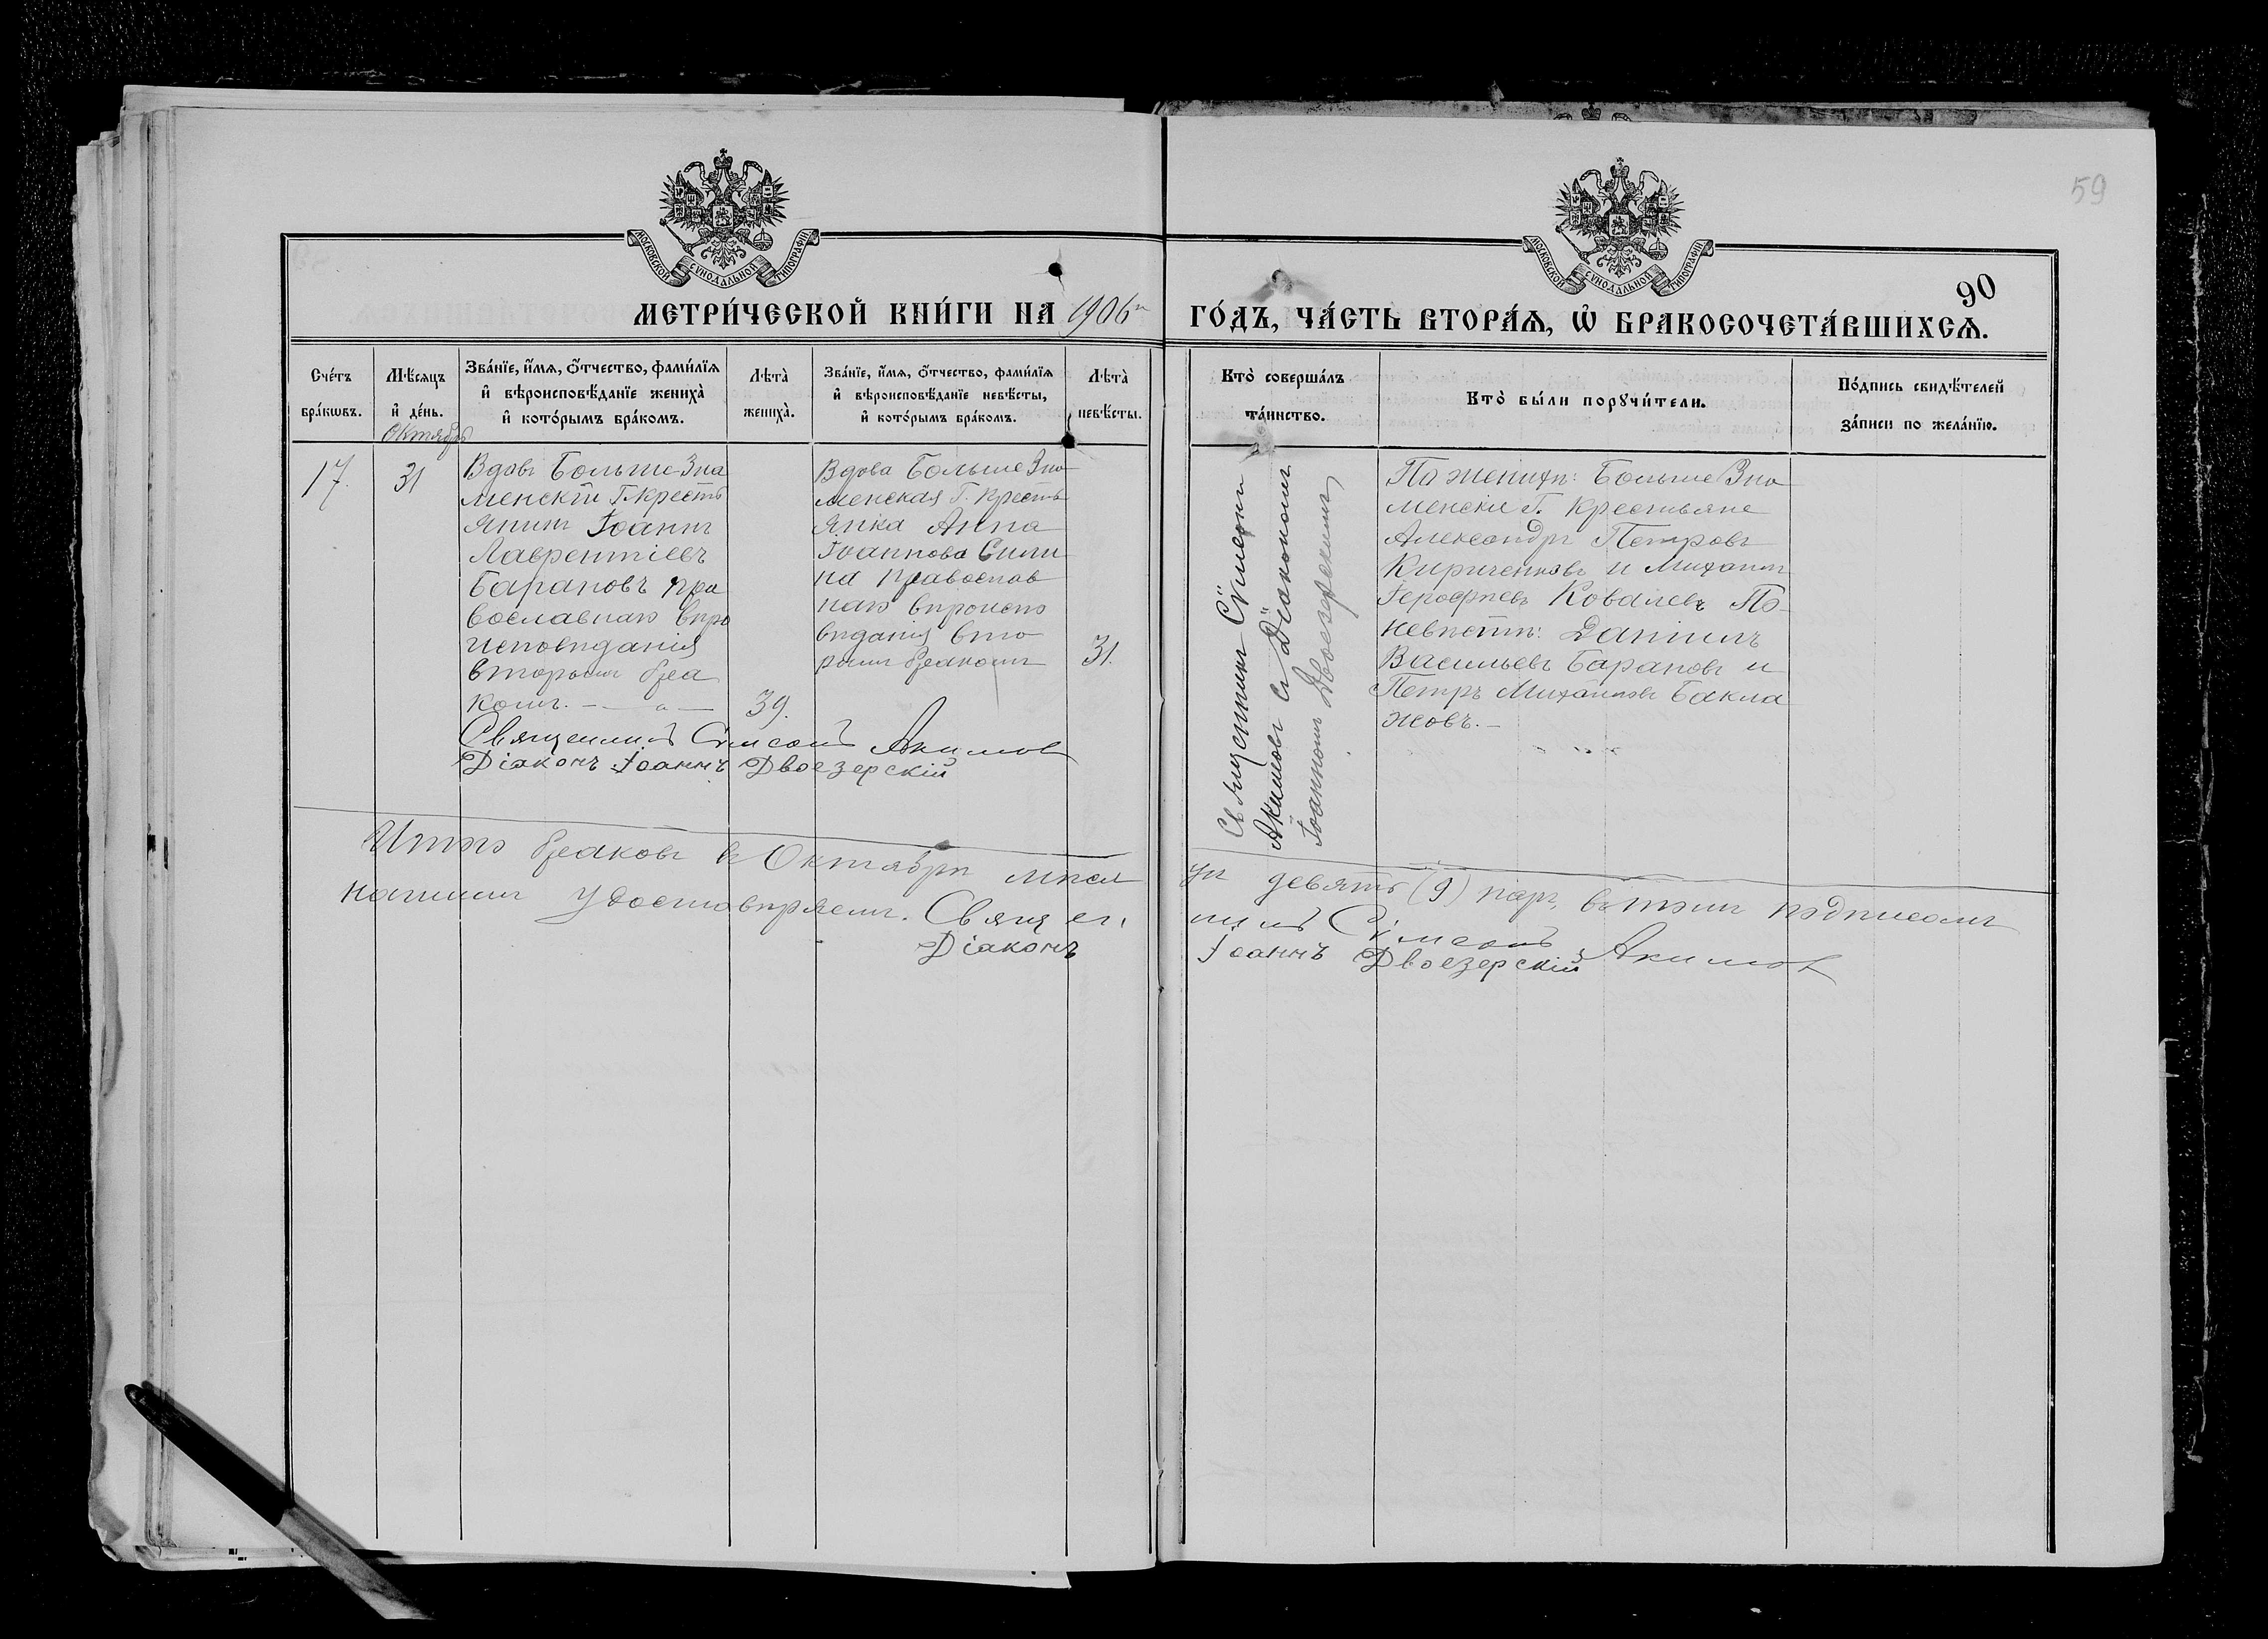 59
90
МОСКОВСКОЙ СѴНОДАЛЬНОЙ ТИПОГРАФІИ
МОСКОВСКОЙ СѴНОДАЛЬНОЙ ТИПОГРАФІИ
МЕТРИ́ЧЕСКОЙ КНИ́ГИ НА 1906й ГО́ДЪ, ЧА́СТЬ ВТОРА́Ѧ, Ѡ҆ БРАКОСОЧЕТА́ВШИХСѦ.
Сче́тъ
бра́кѡвъ.
Мѣ́сяцъ
и҆ де́нь.
Октябрь
Зва́нїе, и҆́мѧ, ѻ҆́тчество, фами́лїѧ
и҆ вѣроисповѣ́данїе жениха̀
и҆ кото́рымъ бра́комъ.
Лѣта̀
жениха̀.
Зва́нїе, и҆́мѧ, ѻ҆́тчество, фами́лїѧ
и҆ вѣроисповѣ́данїе невѣ́сты,
и҆ кото́рымъ бра́комъ.
Лѣта̀
невѣ́сты.
Кто̀ соверша́лъ
та́инство.
Кто̀ бы́ли порꙋчи́тели.
По́дпись свидѣ́телей
за́писи по жела́нїю.
17.
31
Вдовъ Больше-Зна
менскій Г. кресть
янинъ Іоаннъ
Лаврентіевъ
Барановъ пра
вославнаго вѣро
исповѣданія
вторымъ бра
комъ. — „ —
39.
Вдова Больше Зна
менская Г. кресть
янка Анна
Іоаннова Сили
на православ
наго вѣроиспо
вѣданія вто
рымъ бракомъ
31.
Священникъ Сѵмеонъ
Акимовъ съ Діакономъ
Іоанномъ Двоезерскимъ
По женихѣ: Больше Зна
менскіе Г. крестьяне
Александръ Петровъ
Кириченковъ и Михаилъ
Іерофіевъ Ковалевъ По
невѣстѣ: Даніилъ
Васильевъ Барановъ и
Петръ Михаиловъ Бакла
жовъ. —
Священникъ Сѵмеонъ Акимовъ
Діаконъ Іоаннъ Двоезерскій
Итого браковъ въ Октябрѣ мѣся
цѣ девять (9) паръ, въ томъ подписомъ
нашимъ удостовѣряемъ. Священ
никъ Сѵмеонъ Акимовъ
Діаконъ Іоаннъ Двоезерскій